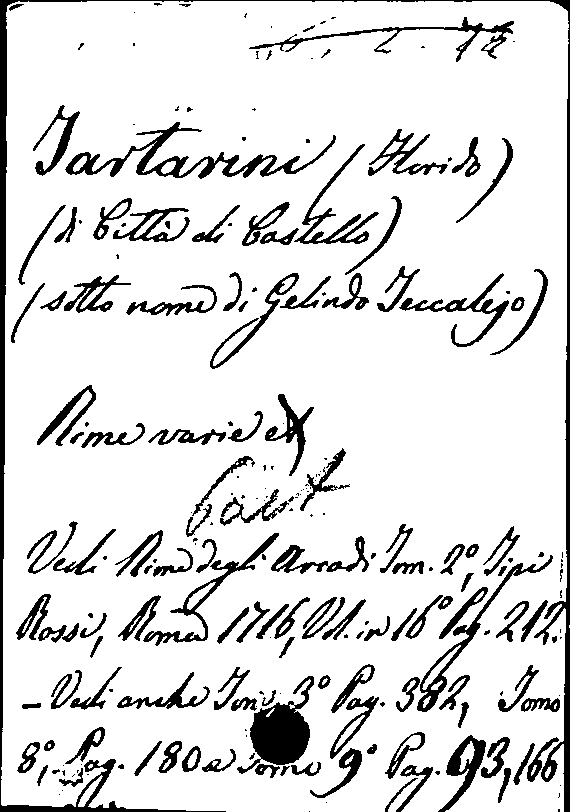 Tartarini (Florido)
(di Città di Castello)
(sotto nome di Gelindo Teccalejo)
Rime varie
Vedi Rime degli Arcadi Tom. 2º, Tipi
Rossi, Roma 1716, Vol. in 16º Pag. 212.
– Vedi anche Tomo 3º Pag. 382, Tomo
8º, Pag. 180 e Tomo 9º Pag. 93, 166